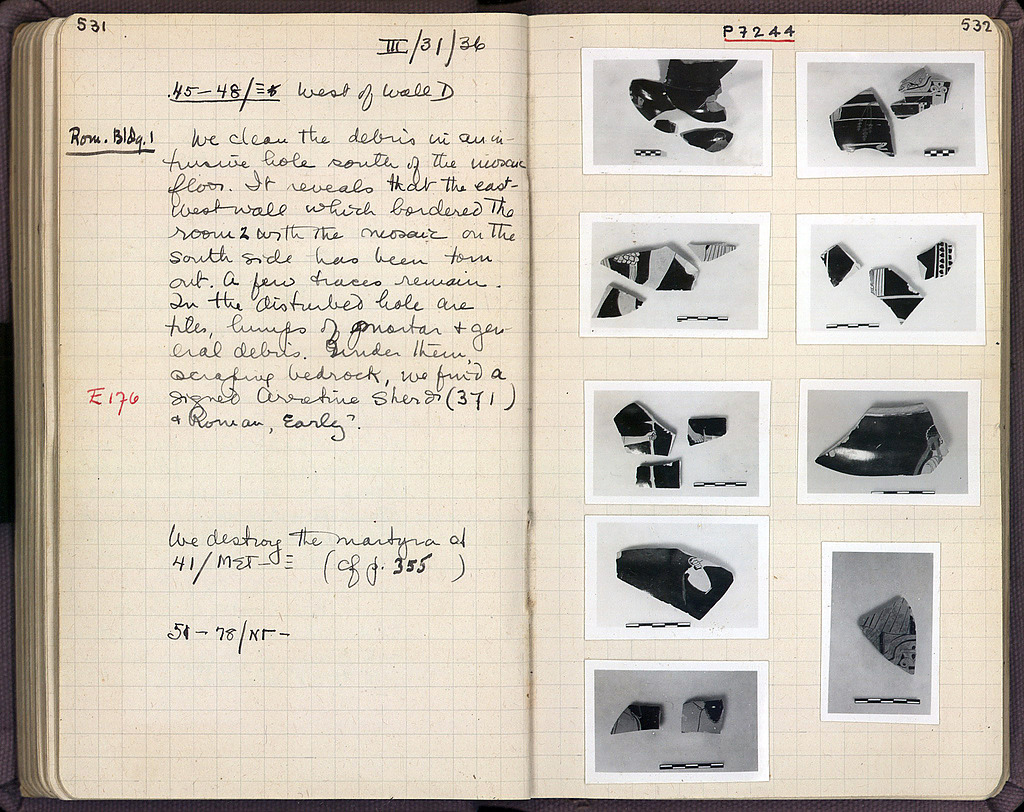 531
III/31/36
45-48/Ξ* West of Wall D
Rom. Bldg. 1 We clean the debris in an in-
trusive hole south of the mosaic
floor. It reveals that the east-
west wall which bordered the
room 2 with the mosaic on the
south side has been torn
out. A few traces remain.
In the disturbed hole are
tiles, lumps of mortar + gen-
eral debris. Under them,
scraping bedrock, we find a
E176 signed Arretine Sherd (371)
+ "Roman, Early".
We destroy the martyra at
41/ΜΣΤ-Ξ (cf p. 355 )
51-78/ΝΓ-
P7244
532